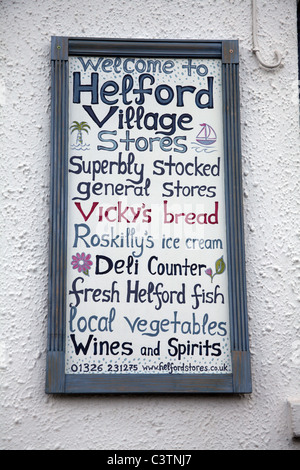 Welcome to
Helford
Village
Stores
Superbly Stocked
general Stores
Vicky's bread
Roskilly's ice cream
Deli Counter
fresh Helford fish
local vegetables
Wines and Spirits
01326 231275 www.helfordstores.co.uk
alamy
Image ID: C3TNJ7
www.alamy.com